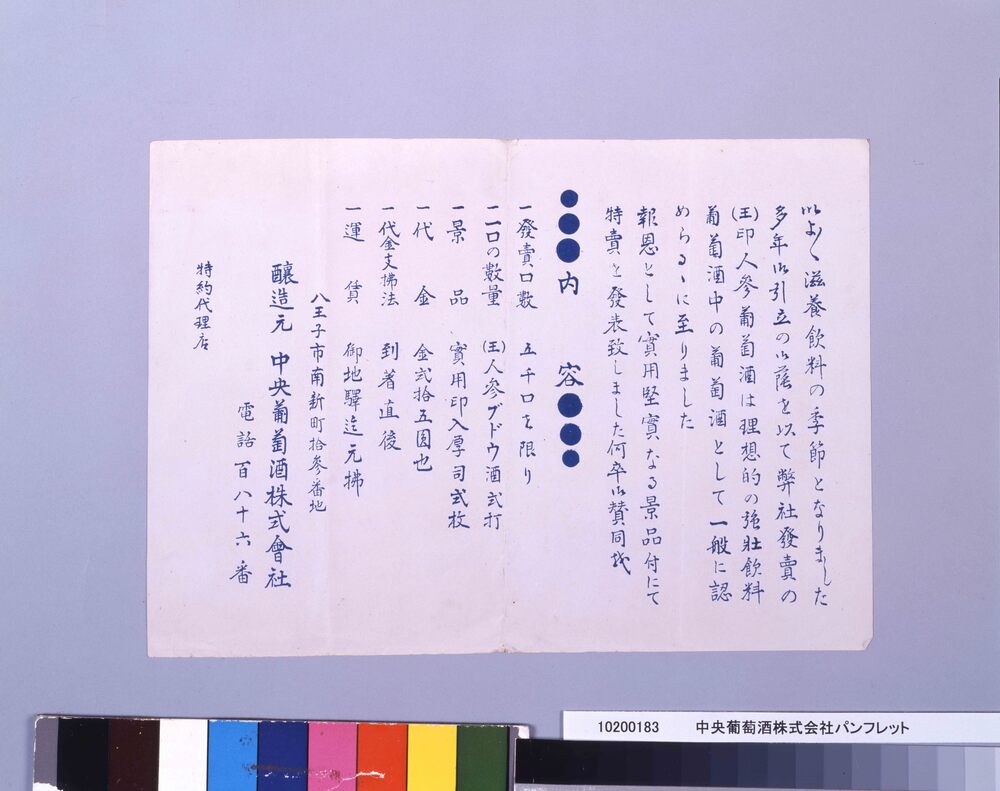 いよ〱滋養飲料の季節となりました
多年御引立の御蔭を以て弊社發賣の
(王)印人参葡萄酒は理想的の強壯飲料
葡萄酒中の葡萄酒として一般に認
めらるゝに至りました
報恩として實用堅實なる景品付にて
特賣を發表致しました何卒御賛同
●●●内容●●●
一發賣口數 五千口を限り
一一口の数量 (王)人参ブドウ酒弍打
一景品 實用印入厚司弍枚
一代金 金弍拾五圓也
一代金支拂法 到着直後
一運賃 御地驛迄元拂
八王子市南新町拾参番地
釀造元 中央葡萄酒株式會社
電話百八十六番
特約代理店
10200183 中央葡萄酒株式会社パンフレット